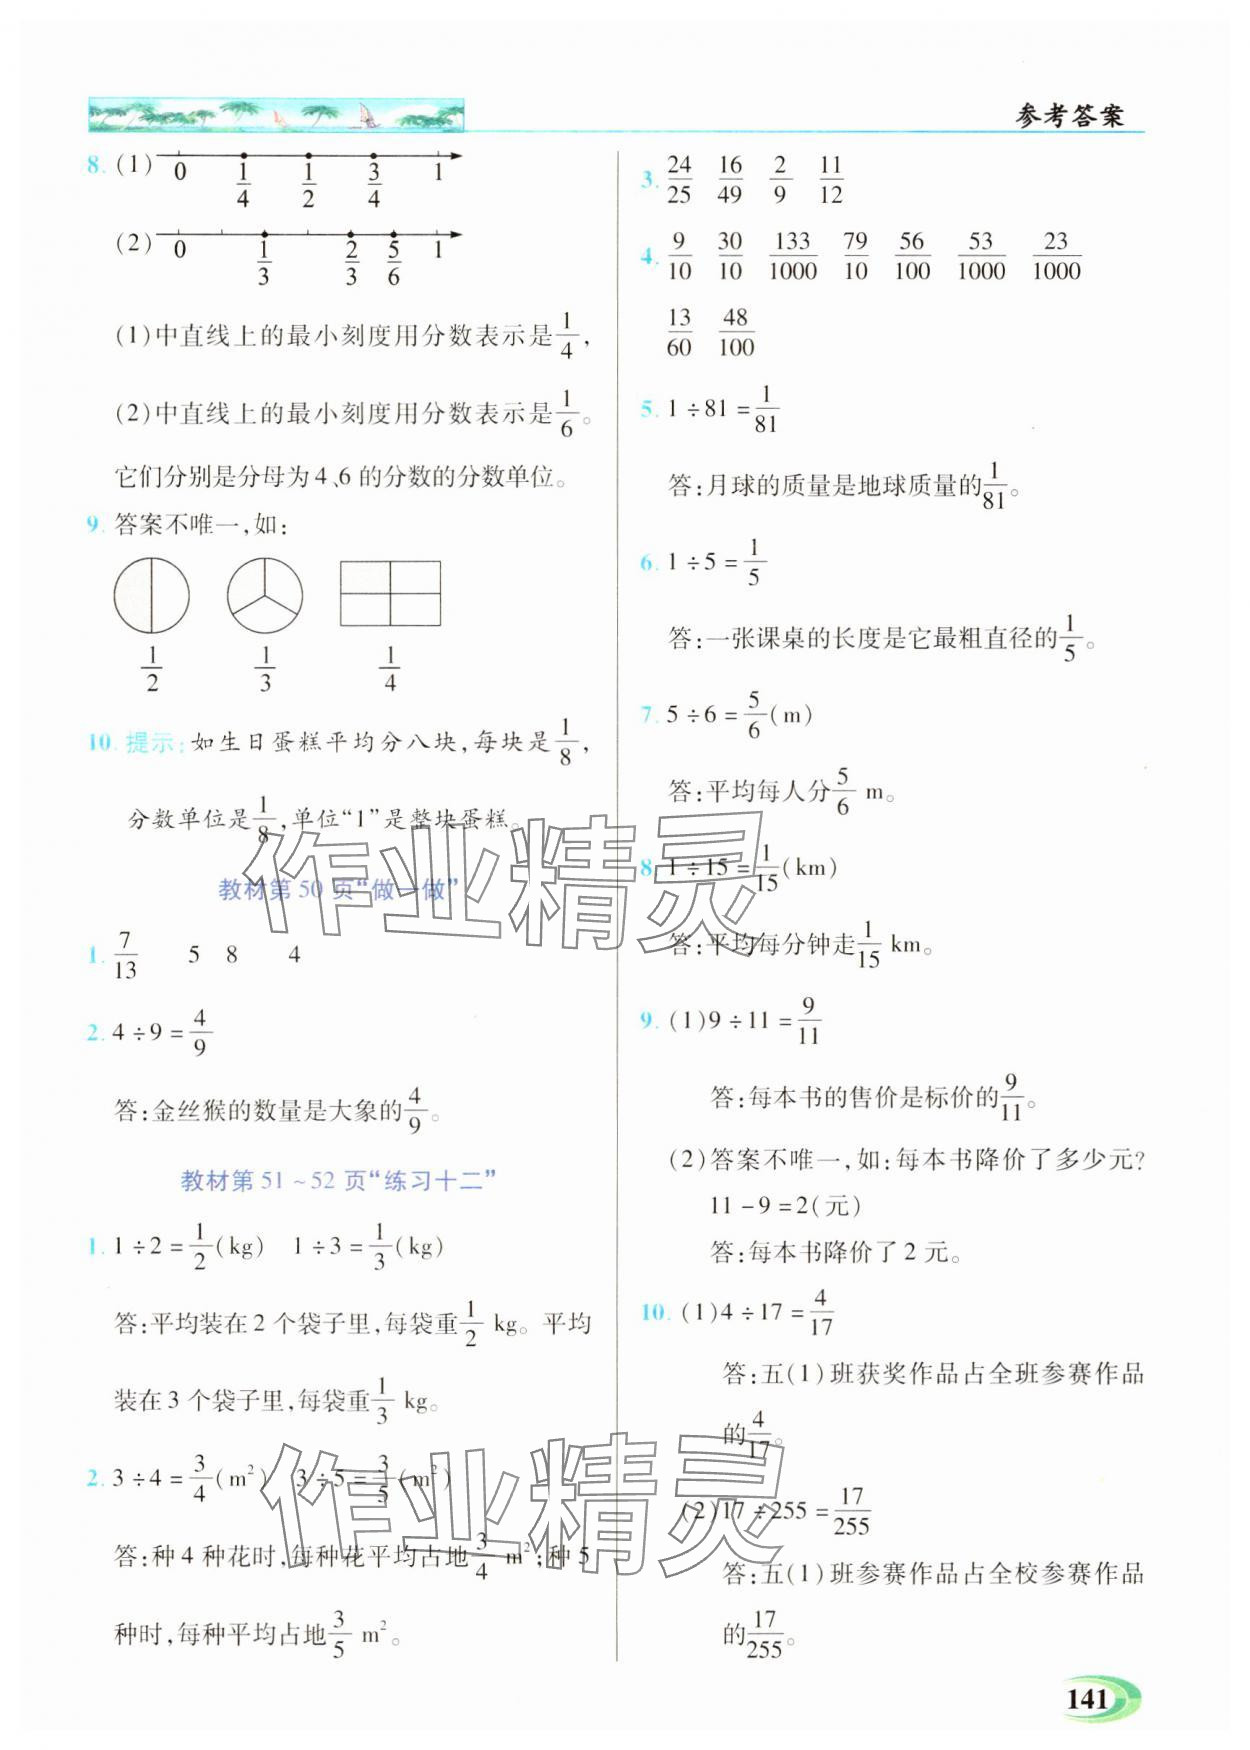 参考答案
8. (1) 0 1/4 1/2 3/4 1
(2) 0 1/3 2/3 5/6 1
(1)中直线上的最小刻度用分数表示是1/4,
(2)中直线上的最小刻度用分数表示是1/6。
它们分别是分母为4、6的分数的分数单位。
9. 答案不唯一,如:
1/2 1/3 1/4
10. 提示:如生日蛋糕平均分八块,每块是1/8,
分数单位是1/8,单位“1”是整块蛋糕。
教材第50页“做一做”
1. 7/13 5 8 4
2. 4÷9=4/9
答:金丝猴的数量是大象的4/9。
教材第51~52页“练习十二”
1. 1÷2=1/2(kg) 1÷3=1/3(kg)
答:平均装在2个袋子里,每袋重1/2 kg。平均
装在3个袋子里,每袋重1/3 kg。
2. 3÷4=3/4(m²) 3÷5=3/5(m²)
答:种4种花时,每种花平均占地3/4 m²;种5
种时,每种平均占地3/5 m²。
3. 24/25 16/49 2/9 11/12
4. 9/10 30/10 133/1000 79/10 56/100 53/1000 23/1000
13/60 48/100
5. 1÷81=1/81
答:月球的质量是地球质量的1/81。
6. 1÷5=1/5
答:一张课桌的长度是它最粗直径的1/5。
7. 5÷6=5/6(m)
答:平均每人分5/6 m。
8. 1÷15=1/15(km)
答:平均每分钟走1/15 km。
9. (1)9÷11=9/11
答:每本书的售价是标价的9/11。
(2)答案不唯一,如:每本书降价了多少元?
11-9=2(元)
答:每本书降价了2元。
10. (1)4÷17=4/17
答:五(1)班获奖作品占全班参赛作品
的4/17。
(2)17÷255=17/255
答:五(1)班参赛作品占全校参赛作品
的17/255。
141
作业精灵
作业精灵